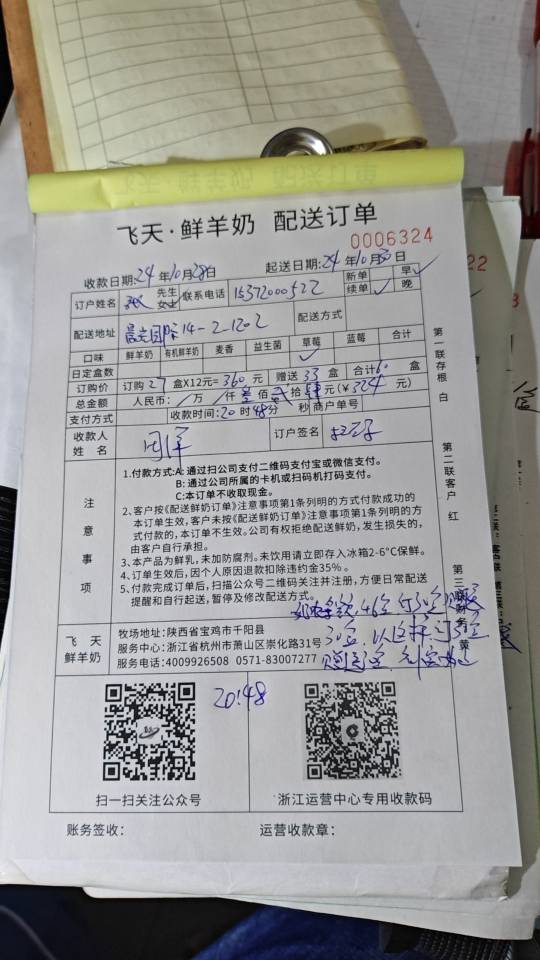 飞天·鲜羊奶 配送订单
0006324
收款日期:24年10月28日 起送日期:24年10月30日
订户姓名 先生 女士 联系电话 15372000522 新单 续单 ✓ 早 ✓ 晚
配送地址 国际14-2-1202 配送方式
口味 鲜羊奶 有机鲜羊奶 麦香 益生菌 草莓 蓝莓 合计
日定盒数 ✓
订购价 订购27盒X12元=360元 赠送33盒 合计60盒
总金额 人民币: / 万 / 仟 叁 佰 贰 拾 肆 元(¥324元)
支付方式 收款时间:20时48分 秒 商户单号
收款人姓名 订户签名
注意事项
1.付款方式:A:通过扫公司支付二维码支付宝或微信支付。
B:通过公司所属的卡机或扫码机打码支付。
C:本订单不收取现金。
2、客户按《配送鲜奶订单》注意事项第1条列明的方式付款成功的
本订单生效,客户未按《配送鲜奶订单》注意事项第1条列明的方
式付款的,本订单不生效。公司有权拒绝配送鲜奶,发生损失的,
由客户自行承担。
3、本产品为鲜乳,未加防腐剂。未饮用请立即存入冰箱2-6°C保鲜。
4、订单生效后,因个人原因退款扣除违约金35%。
5、付款完成订单后,扫描公众号二维码关注并注册,方便日常配送
提醒和自行起送,暂停及修改配送方式。
飞天鲜羊奶
牧场地址:陕西省宝鸡市千阳县
服务中心:浙江省杭州市萧山区崇化路31号
服务电话:4009926508 0571-83007277
20:48
扫一扫关注公众号 浙江运营中心专用收款码
账务签收: 运营收款章:
第一联存根 白
第二联客户 红
第三联财务 黄
22